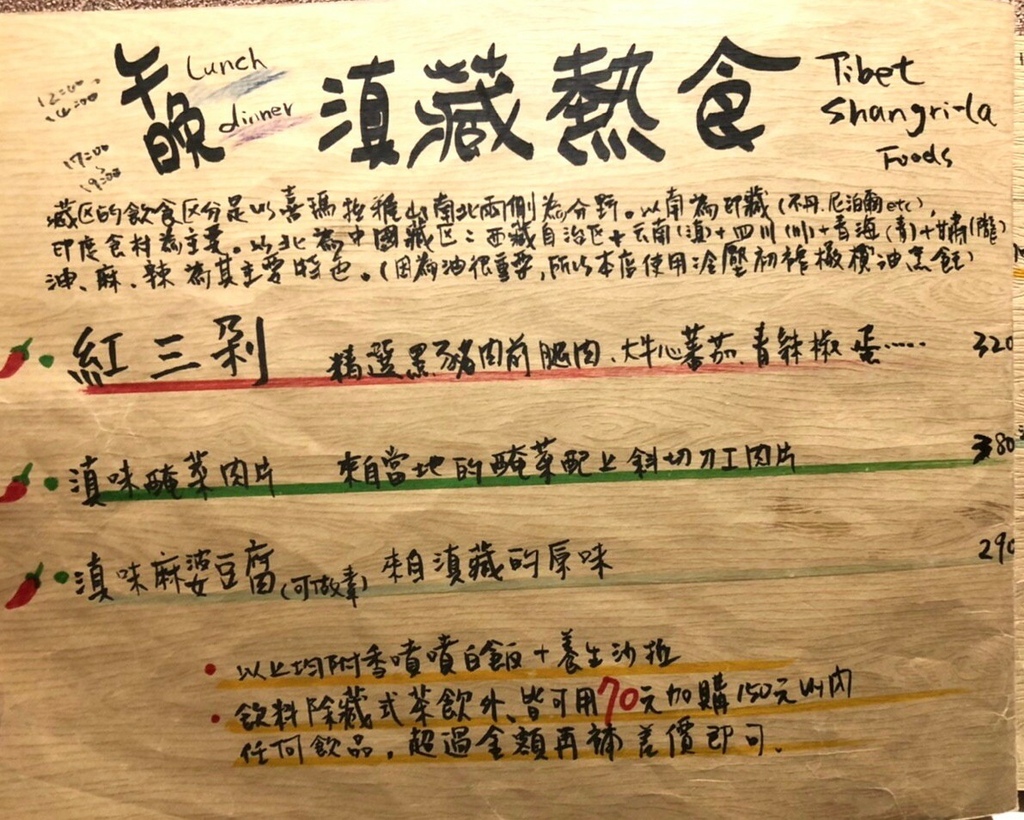 午 Lunch
12:00~14:00
晚 dinner
17:00~19:00
滇藏熱食
Tibet
Shangri-la
Foods
藏区的飲食区分是以喜瑪拉雅山南北兩側為分野。以南為印藏(不丹.尼泊爾etc),
印度食材為主要。以北為中國藏区:西藏自治区+云南(滇)+四川(川)+青海(青)+甘肅(隴)
油、麻、辣為其主要特色。(因為油很重要,所以本店使用冷壓初榨橄欖油烹飪)
紅三剁 精選黑豬肉前腿肉、大牛心蕃茄、青辣椒 蛋…… 320
滇味醃菜肉片 來自當地的醃菜配上斜切刀工肉片 380
滇味麻婆豆腐(可做素) 來自滇藏的原味 290
以上均附香噴噴白飯+養生沙拉
飲料除藏式茶飲外、皆可用70元加購150元以內
任何飲品,超過金額再補差價即可.